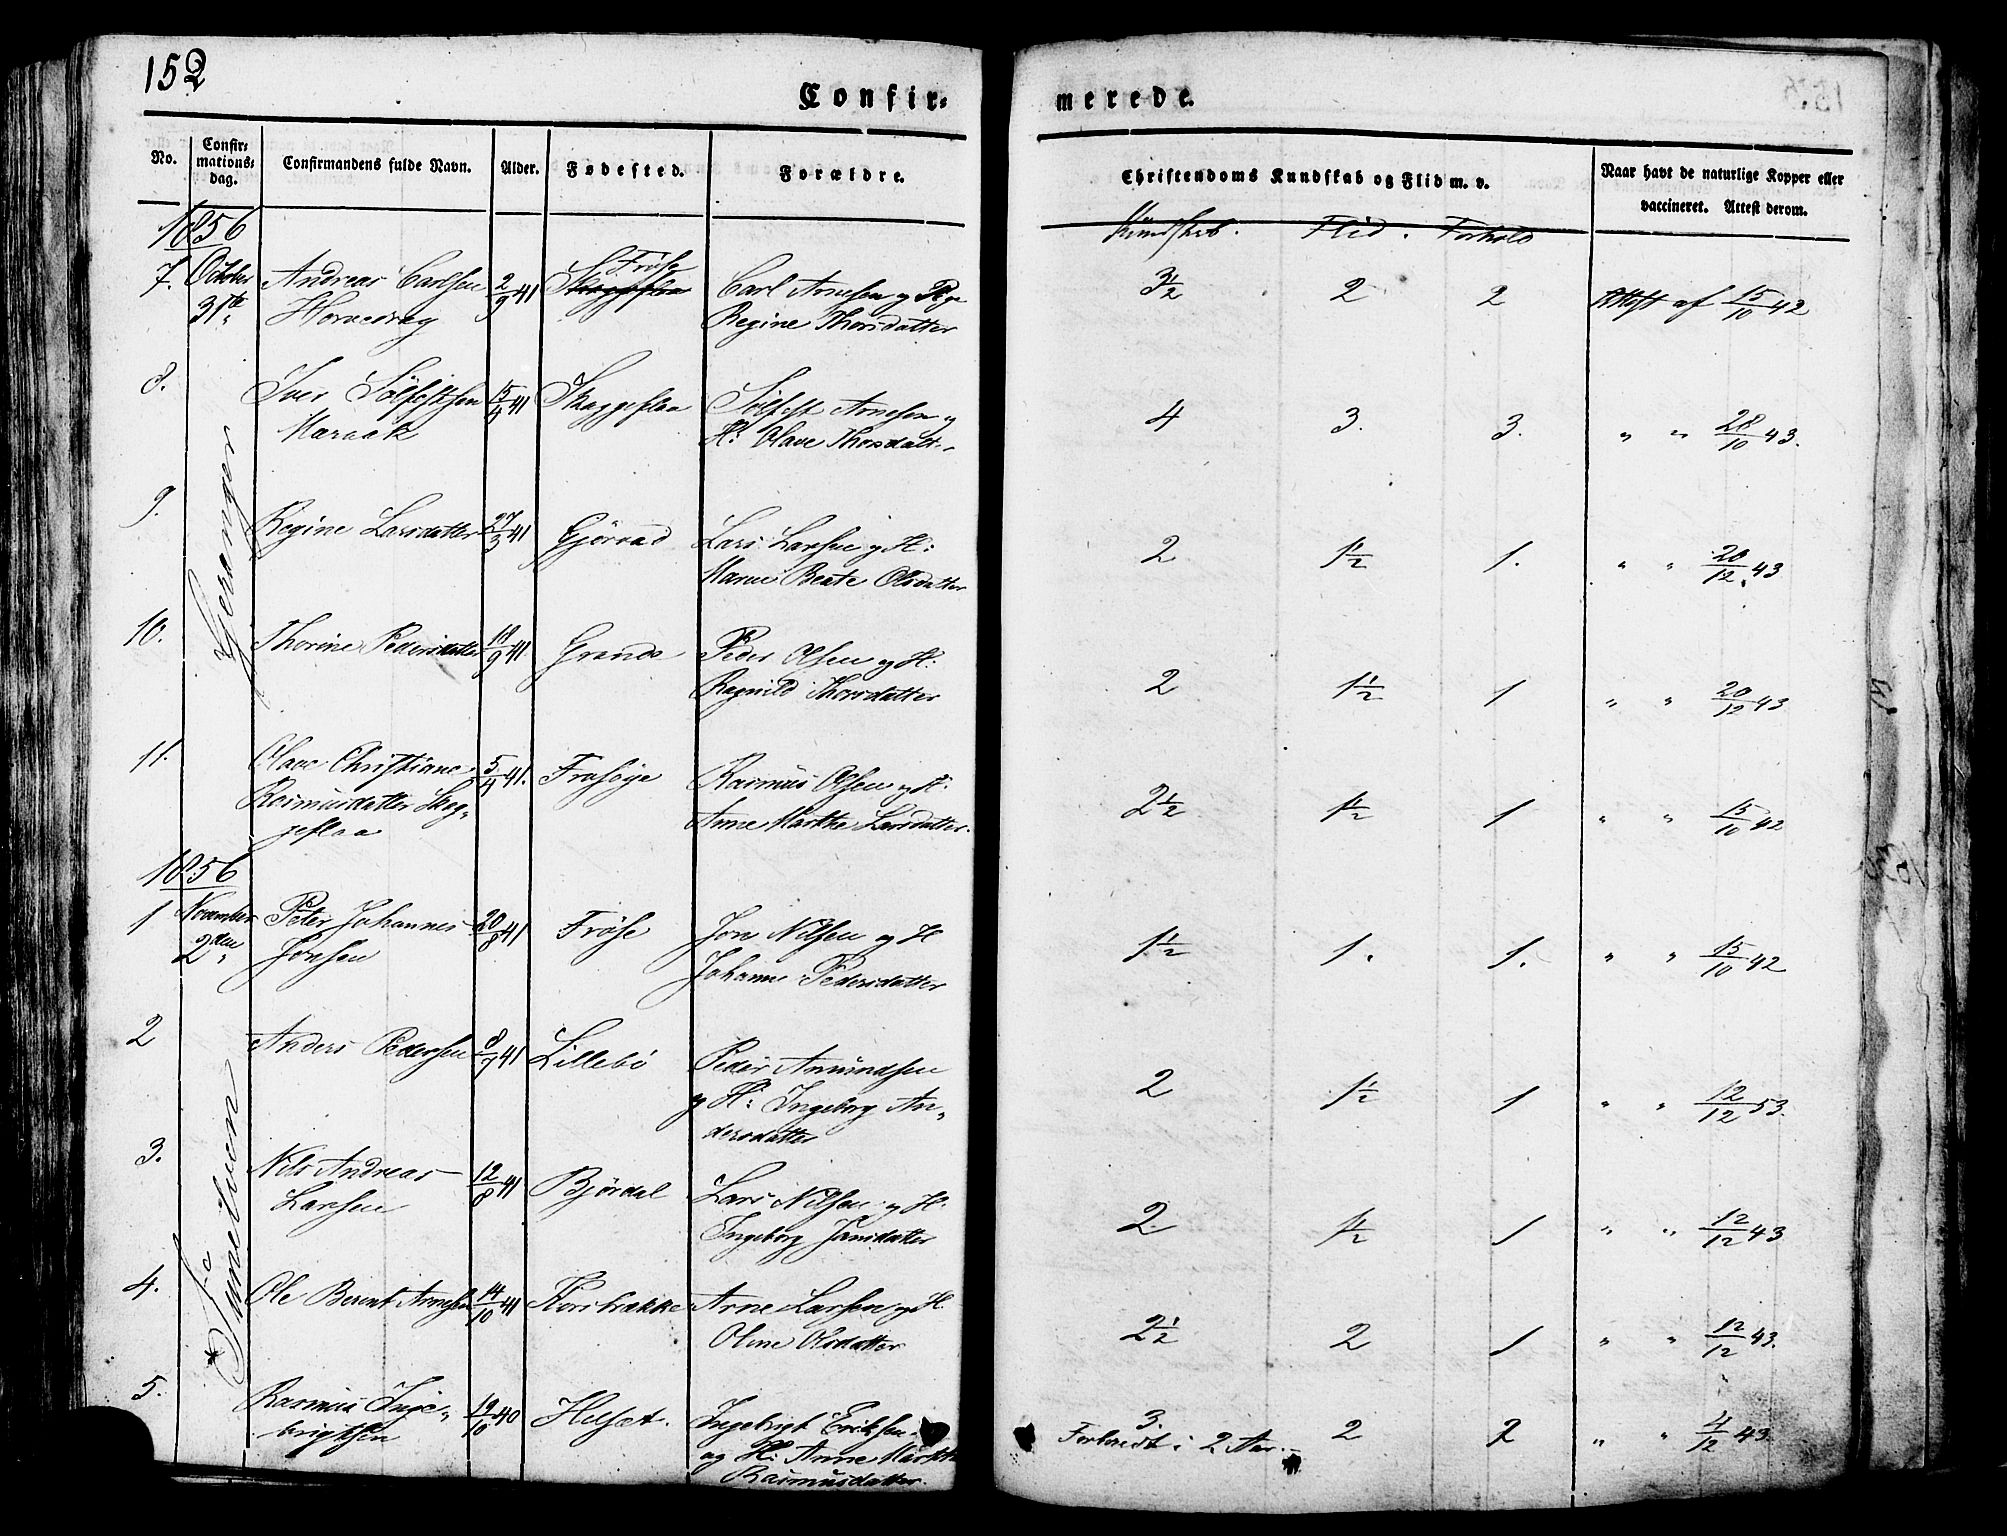 152
Confir-
merede.
No.
Confir-
mations-
dag.
Confirmandens fulde Navn.
Alder.
Fødested.
Forældre.
Christendoms Kundskab og Flid m. v.
Naar havt de naturlige Kopper eller
vaccineret. Attest derom.
Kundskab. Flid. Forhold
1856
7. October 31te Andreas Carlsen 2/9 41 Frøse Carl Arnesen og
Horvedrag Skaggeflaa Regine Thorsdatter
3½ 2 2 Attest af 15/10 42
Gjeranger
8. Iver Sølfestsen 15/4 41 Skaggeflaa Sølfest Arnesen og
Maraak H: Olave Thorsdatt.
4 3. 3. " " 28/10 43.
9. Regine Larsdatter 27/3 41 Gjørvad Lars Larsen og H:
Maren Beate Olsdatter
2 1½ 1. " " 20/12 43
10. Thorine Pedersdatter 18/9 41 Grande Peder Olsen og H:
Ragnild Thorsdatter
2 1½ 1 " " 20/12 43
11. Olave Christiane 5/4 41. Frøsøye Rasmus Olsen og H:
Rasmusdatter Skag-
geflaa Anne Marthe Larsdatter.
2½ 1½ 1 " " 15/10 42
1856
1 November 2den Peter Johannes 20/8 41 Frøse Jon Nilsen og H
Jonsen Johanne Pedersdatter
1½ 1. 1. " " 15/10 42
Sunelven
2 Anders Pedersen 8/7 41 Lillebø Peder Amundsen
og H: Ingeborg An-
dersdatter
2 1½ 1 " " 12/12 53.
3. Nils Andreas 12/8 41 Bjørdal Lars Nilsen og H.
Larsen Ingeborg Jansdatter
2. 1½ 1 " " 12/12 43
4. Ole Berent Arnesen 14/10 41 Korsbrække Arne Larsen og H.
Oline Olsdatter
2½ 2 1 " " 12/12 43.
5. Rasmus Inge- 19/10 40 Helset. Ingebrigt Eriksen
brigtsen og H: Anne Marthe
Rasmusdatter.
3. 2 2 " " 4/12 43.
Forberedt i 2 Aar.